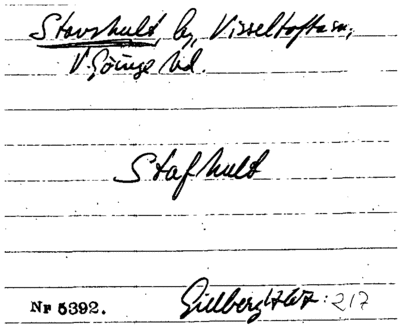 Stavshult, by, Visseltofta sn,
V. Göinge hd.
Stafhult
Nr 5392. Gillberg 1767: 217